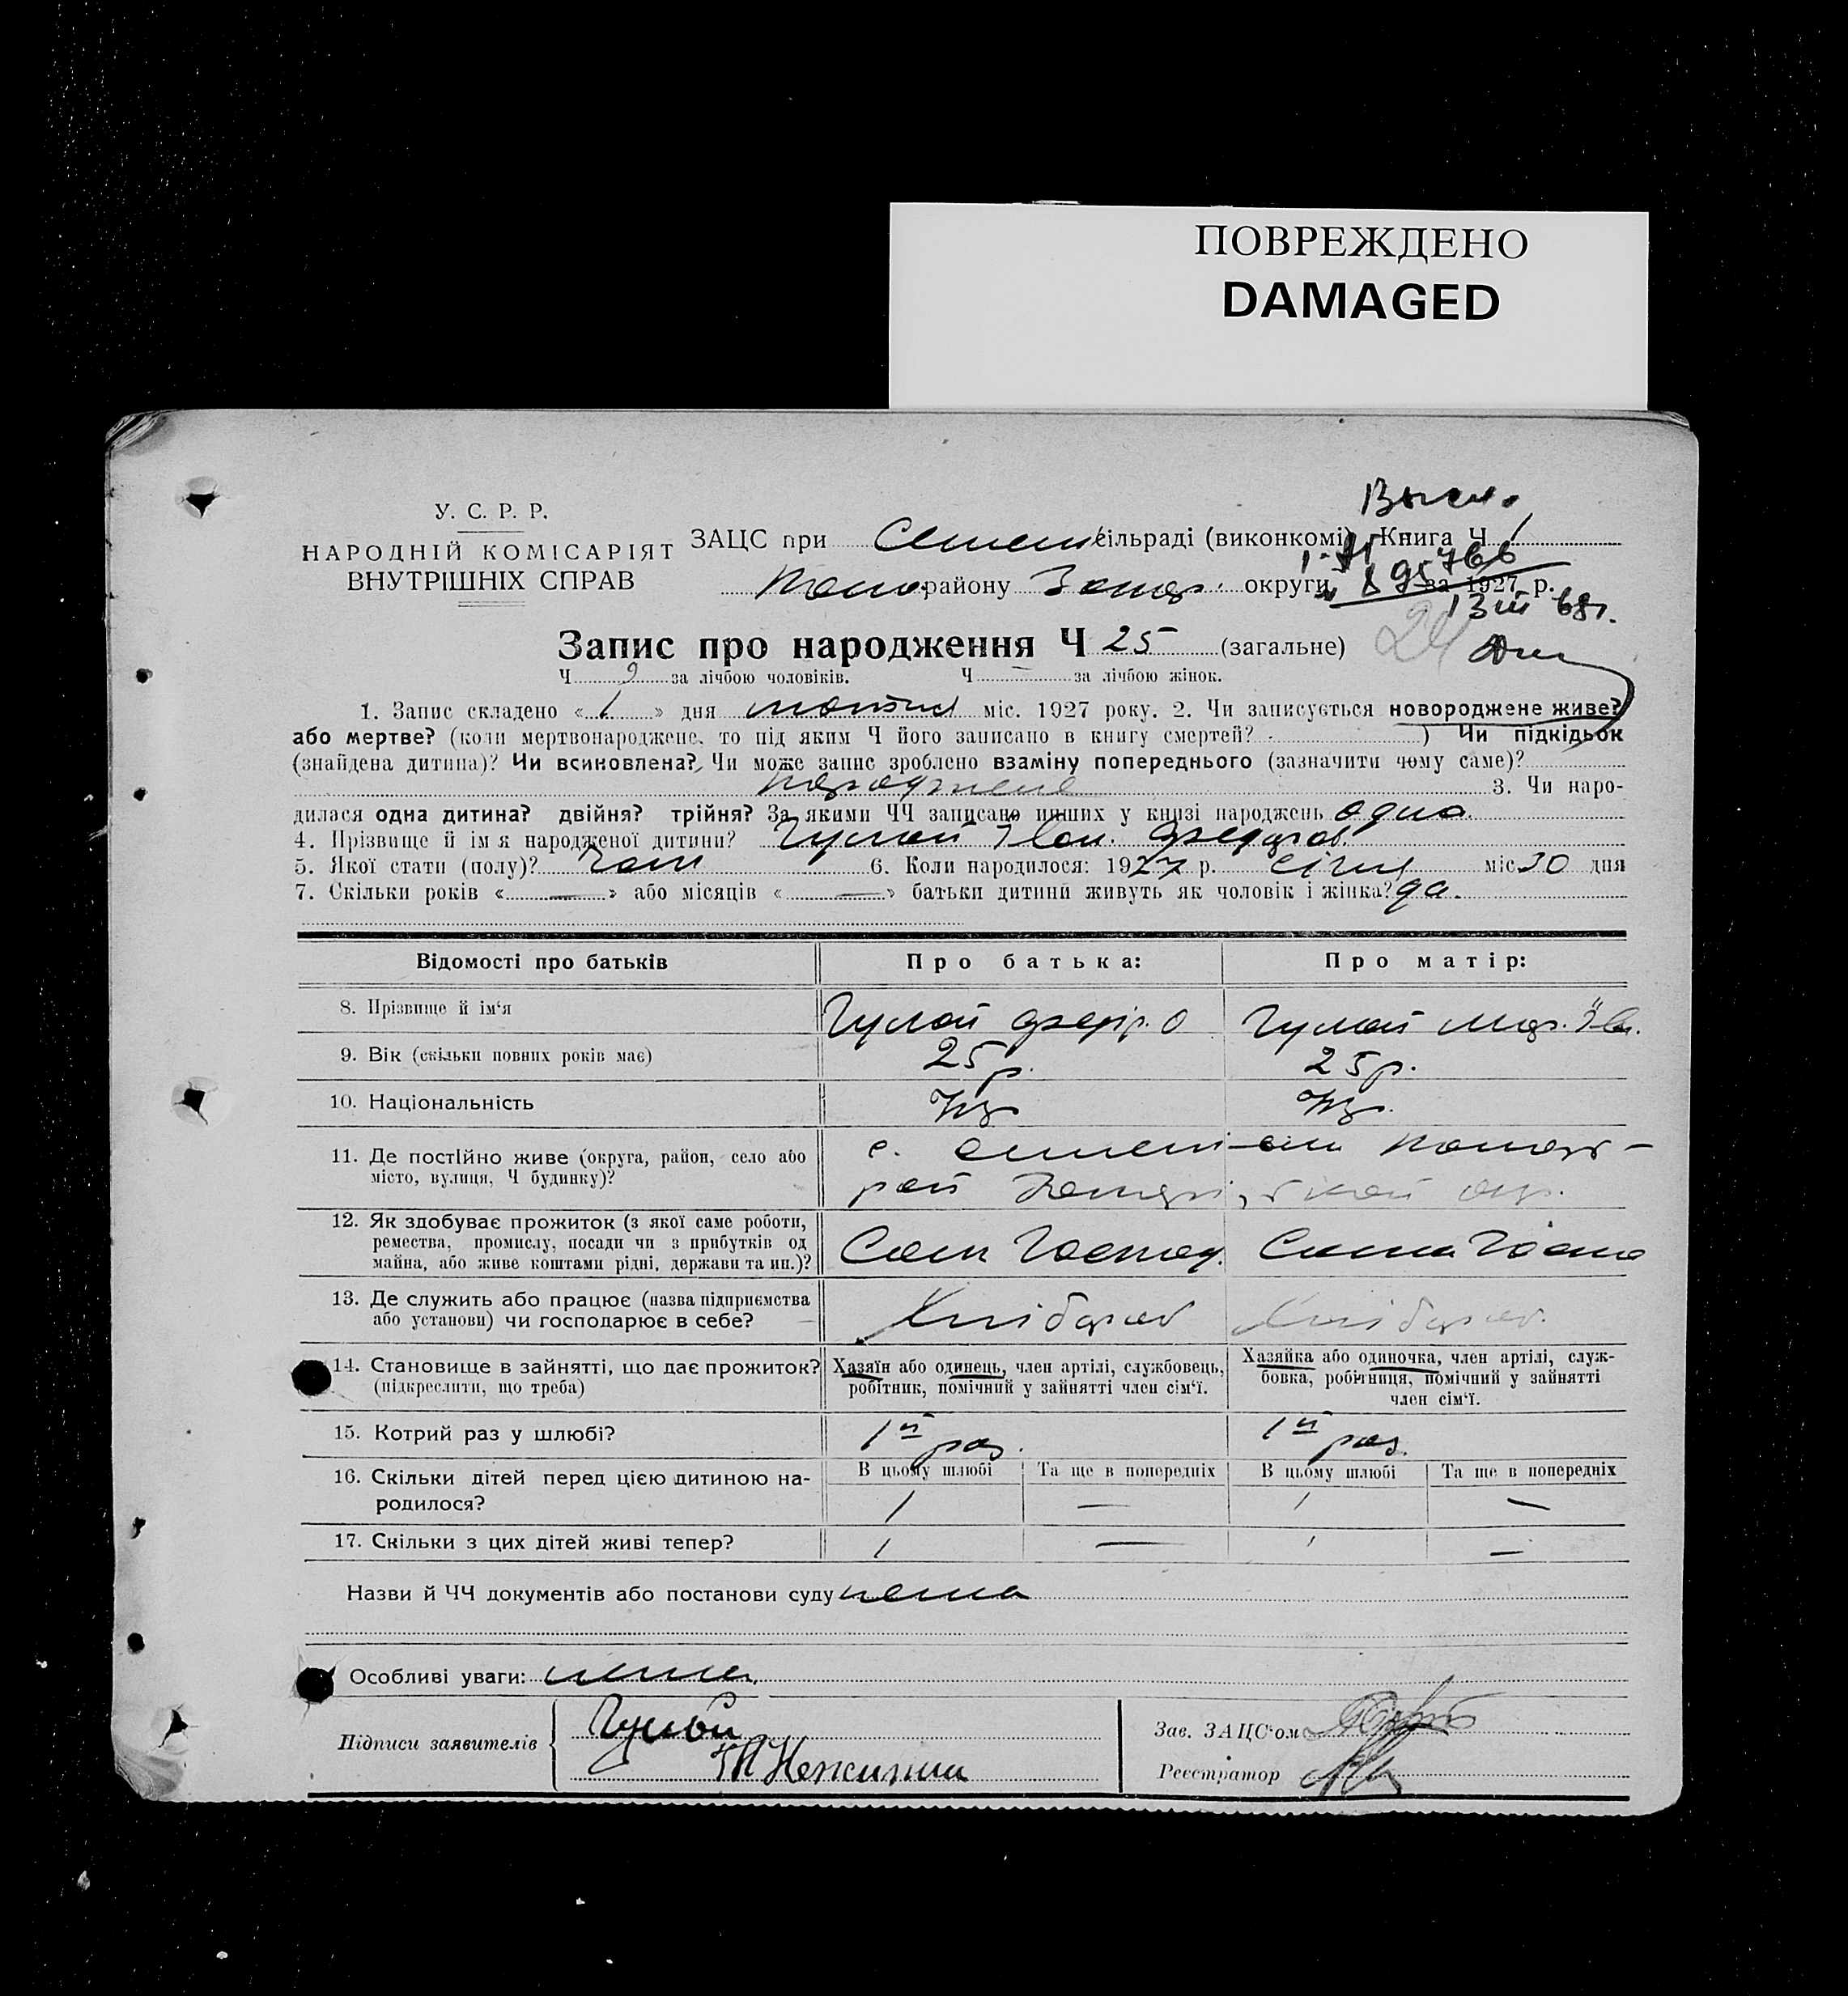 ПОВРЕЖДЕНО
DAMAGED
У. С. Р. Р.
НАРОДНІЙ КОМІСАРІЯТ
ВНУТРІШНІХ СПРАВ
ЗАЦС при сільраді (виконкомі) Книга Ч 1
району Запор. округи за 1927 р.
13 III 68г.
Запис про народження Ч 25 (загальне)
24
Ч 9 за лічбою чоловіків. Ч — за лічбою жінок.
1. Запис складено « 1 » дня міс. 1927 року. 2. Чи записується новороджене живе?
або мертве? (коли мертвонароджене, то під яким Ч його записано в книгу смертей? ) Чи підкідьок
(знайдена дитина)? Чи всиновлена? Чи може запис зроблено взаміну попереднього (зазначити чому саме)?
народжене 3. Чи наро-
дилася одна дитина? двійня? трійня? За якими ЧЧ записано инших у книзі народжень одна
4. Прізвище й ім'я народженої дитини? Гулай Іван. Федоров.
5. Якої стати (полу)? Чол 6. Коли народилося: 1927 р. січня міс 30 дня
7. Скільки років « — » або місяців « — » батьки дитини живуть як чоловік і жінка? да.
Відомості про батьків
Про батька:
Про матір:
8. Прізвище й ім'я Гулай Федір. О Гулай Мар. Ів.
9. Вік (скільки повних років має) 25 р. 25 р.
10. Національність Укр Укр.
11. Де постійно живе (округа, район, село або
місто, вулиця, Ч будинку)?
с.
рай Запорізької окр.
12. Як здобуває прожиток (з якої саме роботи,
ремества, промислу, посади чи з прибутків од
майна, або живе коштами рідні, держави та ин.)?
Сільск Господ. Сільск Госпо
13. Де служить або працює (назва підприємства
або установи) чи господарює в себе?
Хлібороб Хлібороб.
14. Становище в зайнятті, що дає прожиток?
(підкреслити, що треба)
Хазяїн або одинець, член артілі, службовець,
робітник, помічний у зайнятті член сім'ї.
Хазяйка або одиночка, член артілі, служ-
бовка, робітниця, помічний у зайнятті
член сім'ї.
15. Котрий раз у шлюбі? 1й раз. 1й раз.
16. Скільки дітей перед цією дитиною на-
родилося?
В цьому шлюбі Та ще в попередніх В цьому шлюбі Та ще в попередніх
1 — 1 —
17. Скільки з цих дітей живі тепер? 1 — 1 —
Назви й ЧЧ документів або постанови суду нема
Особливі уваги: нема.
Підписи заявителів Гулай
Зав. ЗАЦС'ом
Реєстратор